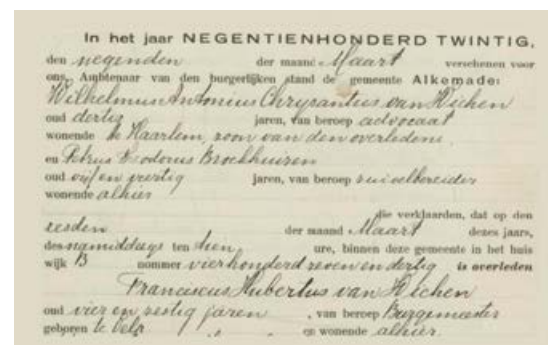 In het jaar NEGENTIENHONDERD TWINTIG,
den negenden der maand Maart verschenen voor
ons, Ambtenaar van den burgerlijken stand de gemeente Alkemade:
Wilhelmus Antonius Chrysantus van Wichen
oud dertig jaren, van beroep advocaat
wonende te Haarlem, zoon van den overledene,
en Petrus Teodorus Broekhuizen
oud vijf en veertig jaren, van beroep zuivelbereider
wonende alhier
die verklaarden, dat op den
zesden der maand Maart dezes jaars,
des namiddags ten tien ure, binnen deze gemeente in het huis
wijk B nommer vierhonderd zeven en dertig is overleden
Franciscus Hubertus van Wichen
oud vier en zestig jaren, van beroep Burgemeester
geboren te Velp en wonende alhier.